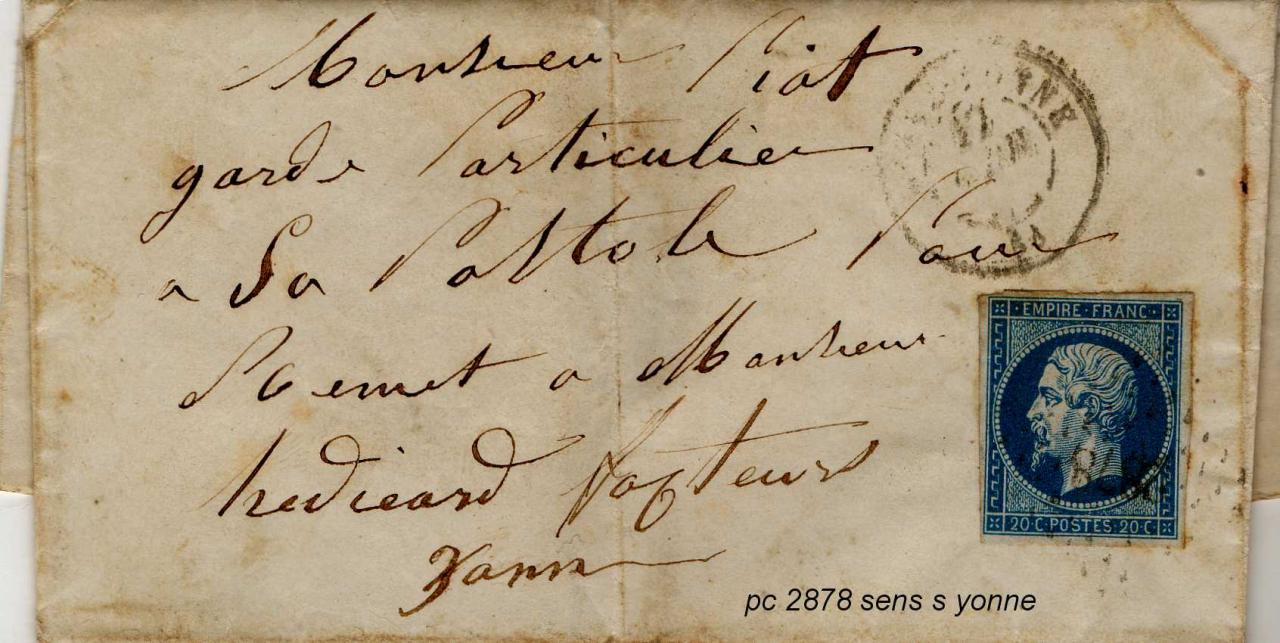 Monsieur Piat
garde Particulier
a La Postole Pour
Remet a Monsieur
hedieard facteurs
Yonn
YONNE
EMPIRE FRANC
20·C·POSTES·20·C
pc 2878 sens s yonne